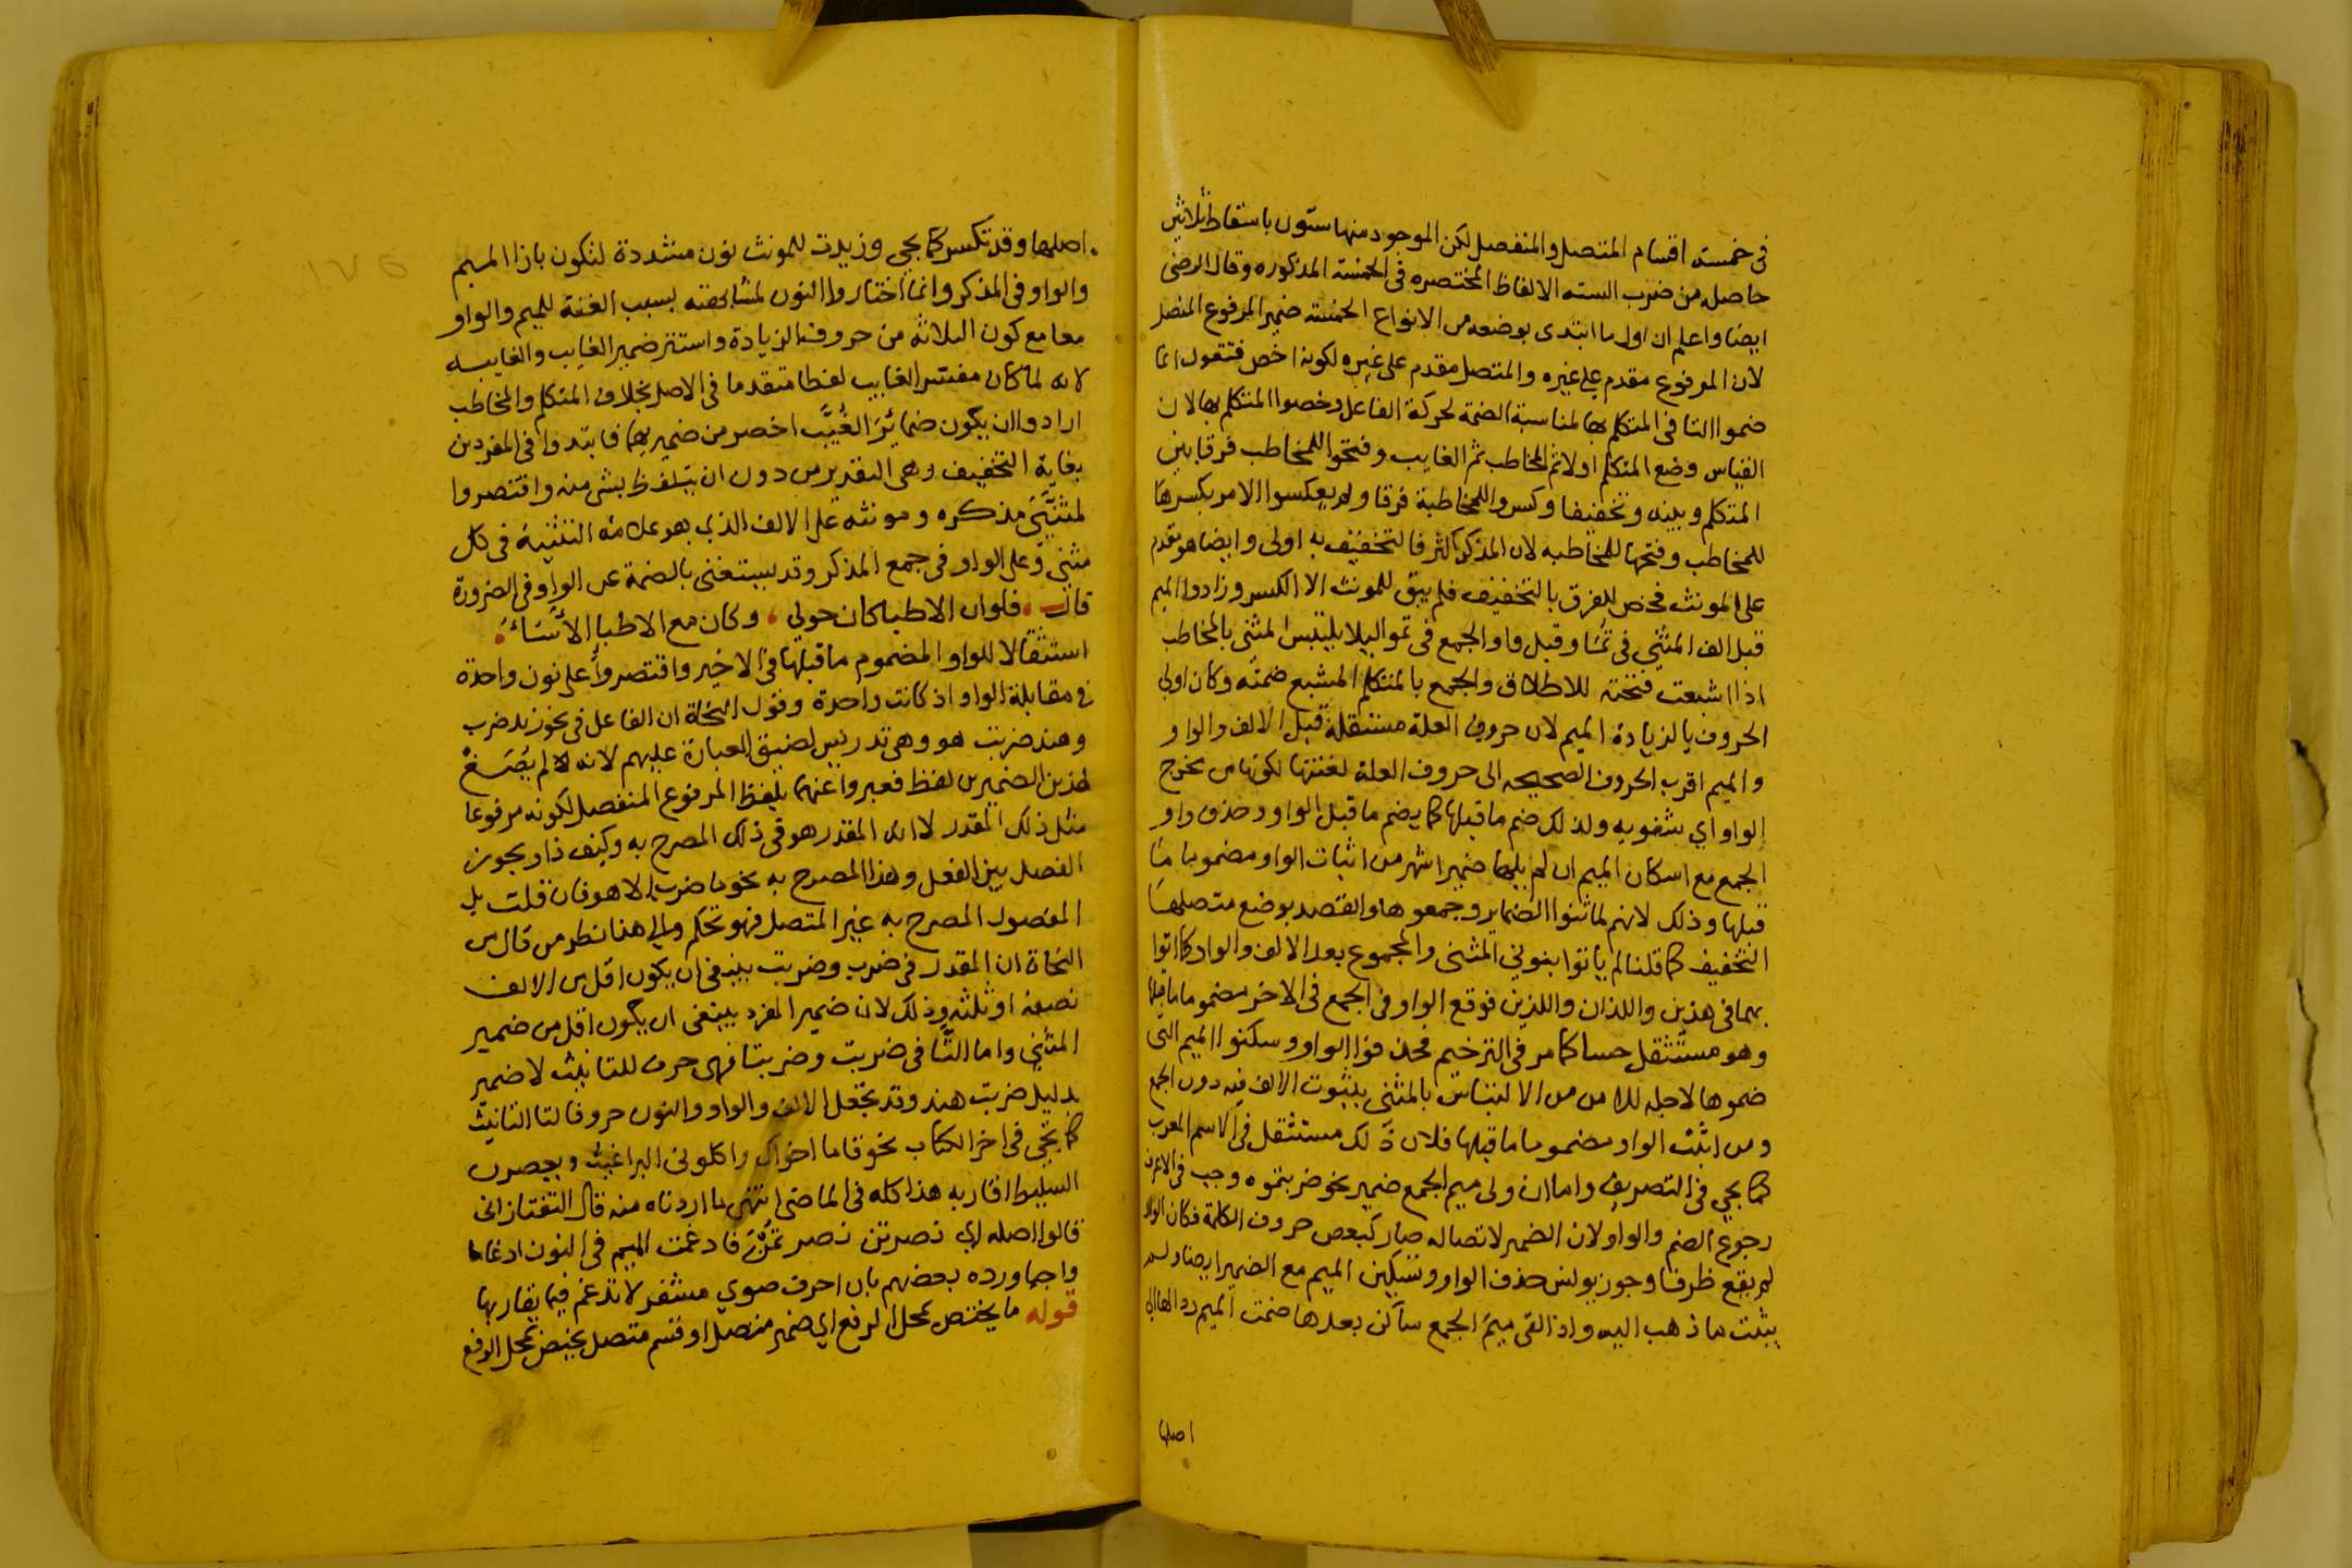 في خمسة اقسام المتصل والمنفصل لكن الموجود منها ستون باسقاط ثلاثين
حاصله من ضرب السته الالفاظ المختصره في الخمسة المذكوره وقال الرضى
ايضا واعلم ان اول ما ابتدى بوضعه من الانواع الخمسة ضمير المرفوع المتصل
لان المرفوع مقدم على غيره والمتصل مقدم على غيره لكونه اخص فتقول انما
ضموا التا في المتكلم بها لمناسبة الضمة لحركة الفاعل وخصوا المتكلم بها لان
القياس وضع المتكلم اولا ثم المخاطب ثم الغايب وفتحوا للمخاطب فرقا بين
المتكلم وبينه وتخفيفا وكسروا للمخاطبة فرقا ولم يعكسوا الامر بكسرها
للمخاطب وفتحها للمخاطبه لان المذكر اكثر فالتخفيف به اولى وايضا هو مقدم
على المونث فخص للفرق بالتخفيف فلم يبق للمونث الا الكسر وزادوا الميم
قبل الف المثنى في تما وقبل واو الجمع في تموا ليلا يلتبس المثنى بالمخاطب
اذا اشبعت فتحته للاطلاق والجمع بالمتكلم المشبع ضمته وكان اولى
الحروف بالزيادة الميم لان حروف العلة مستثقلة قبل الالف والواو
والميم اقرب الحروف الصحيحه الى حروف العلة لغنتها لكونها من مخرج
الواو اي شفويه ولذلك ضم ما قبلها كما يضم ما قبل الواو وحذف واو
الجمع مع اسكان الميم ان لم يلها ضمير اشهر من اثبات الواو مضموما ما
قبلها وذلك لانهم لما ثنوا الضماير وجمعوها والقصد بوضع متصلها
التخفيف كما قلنا لم ياتوا بنوني المثنى والمجموع بعد الالف والواو كما اتوا
بهما في هذين واللذان واللذين فوقع الواو في الجمع في الاخر مضموما ما قبلها
وهو مستثقل حسا كما مر في الترخيم فحذفوا الواو وسكنوا الميم التي
ضموها لاجله للامن من الالتباس بالمثنى بثبوت الالف فيه دون الجمع
ومن اثبت الواو مضموما ما قبلها فلان ذلك مستثقل في الاسم المعرب
كما يجي في التصريف واما ان ولى ميم الجمع ضمير نحو ضربتموه وجب في الاعرف
رجوع الضم والواو لان الضمير لاتصاله صار كبعض حروف الكلمة فكان الواو
لم يقع ظرفا وجوز يونس حذف الواو وتسكين الميم مع الضمير ايضا ولم
يثبت ما ذهب اليه واذا لقى ميم الجمع ساكن بعدها ضمت الميم ردا لها الى
اصلها
اصلها وقد تكسر كما يجي وزيدت للمونث نون مشددة لتكون بازا الميم
والواو في المذكر وانما اختاروا النون لمشابهته بسبب الغنة للميم والواو
معا مع كون الثلاثة من حروف الزيادة واستتر ضمير الغايب والغايبه
لانه لما كان مفسر الغايب لفظا متقدما في الاصل بخلاف المتكلم والمخاطب
ارادوا ان يكون ضمائر الغيب اخصر من ضميريهما فابتدوا في المفردين
بغاية التخفيف وهى التقدير من دون ان يتلفظ بشي منه واقتصروا
لمثنيي مذكره ومونثه على الالف الذي هو علامة التثنية في كل
مثنى وعلى الواو في جمع المذكر وقد يستغنى بالضمة عن الواو في الضرورة
قال فلوان الاطبا كان حولي وكان مع الاطبا الاساة
استثقالا للواو المضموم ما قبلها في الاخير واقتصروا على نون واحدة
في مقابلة الواو اذ كانت واحدة وقول النحاة ان الفاعل في نحو زيد ضرب
وهند ضربت هو وهى تدريس لضيق العبارة عليهم لانه لم يصغ
لهذين الضميرين لفظ فعبروا عنهما بلفظ المرفوع المنفصل لكونه مرفوعا
مثل ذلك المقدر لا ان المقدر هو في ذلك المصرح به وكيف ذا ويجوز
الفصل بين الفعل وهذا المصرح به نحو ما ضرب الا هو فان قلت بل
المفصول المصرح به غير المتصل فهو تحكم والى هنا نظر من قال من
النحاة ان المقدر في ضرب وضربت ينبغي ان يكون اقل من الالف
نصفه او ثلثه وذلك لان ضمير المفرد ينبغى ان يكون اقل من ضمير
المثنى واما التا في ضربت وضربتا فهى حرف للتانيث لا ضمير
بدليل ضربت هند وقد تجعل الالف والواو والنون حروفا لتا التانيث
كما تجي في اخر الكتاب نحو قاما اخواك واكلوني البراغيث ويعصرن
السليط اقاربه هذا كله في الماضى انتهى ما اردناه منه قال التفتازانى
قالوا اصله اي نصرتن نصرتمن فادغمت الميم في النون ادغاما
واجبا ورده بعضهم بان احرف ضوي مشفر لا تدغم فيما يقاربها
قوله ما يختص بمحل الرفع اي ضمير متصل او قسم متصل يختص بمحل الرفع